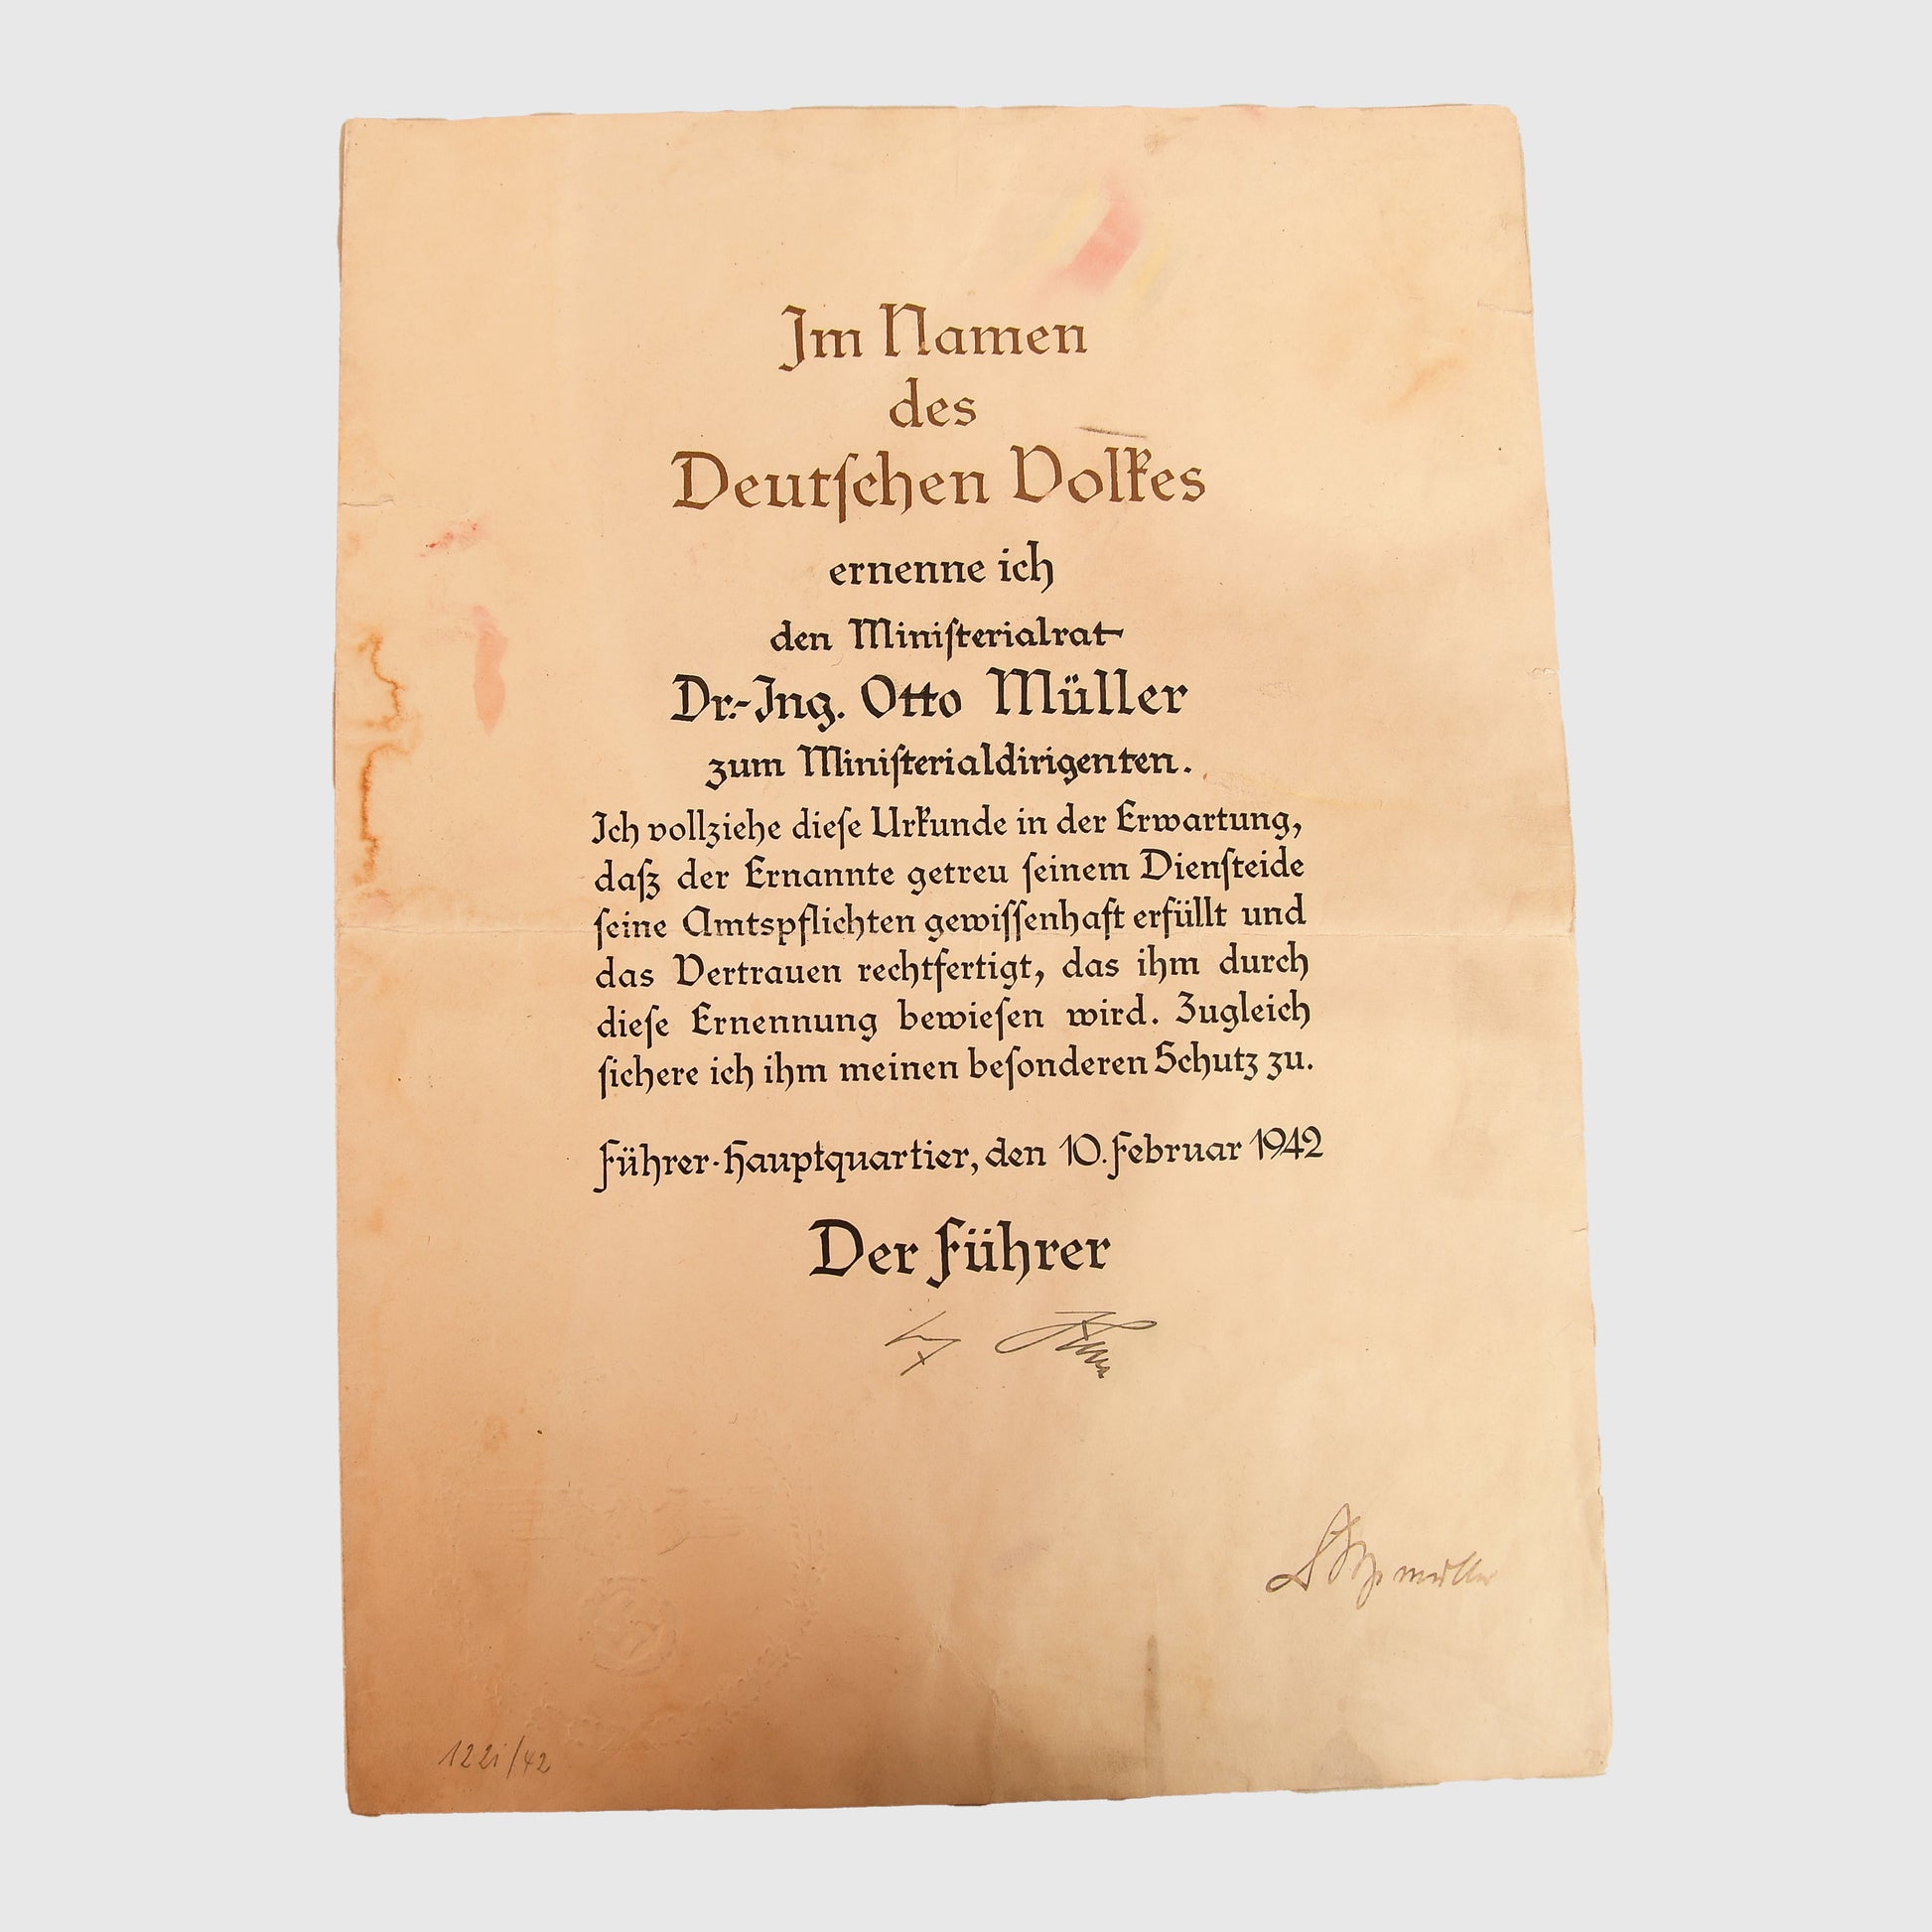 Im Namen
des
Deutſchen Volkes
ernenne ich
den Miniſterialrat
Dr.-Ing. Otto Müller
zum Miniſterialdirigenten.
Ich vollziehe dieſe Urkunde in der Erwartung,
daſz der Ernannte getreu ſeinem Dienſteide
ſeine Amtspflichten gewiſſenhaft erfüllt und
das Vertrauen rechtfertigt, das ihm durch
dieſe Ernennung bewieſen wird. Zugleich
ſichere ich ihm meinen beſonderen Schutz zu.
Führer-Hauptquartier, den 10. Februar 1942
Der Führer